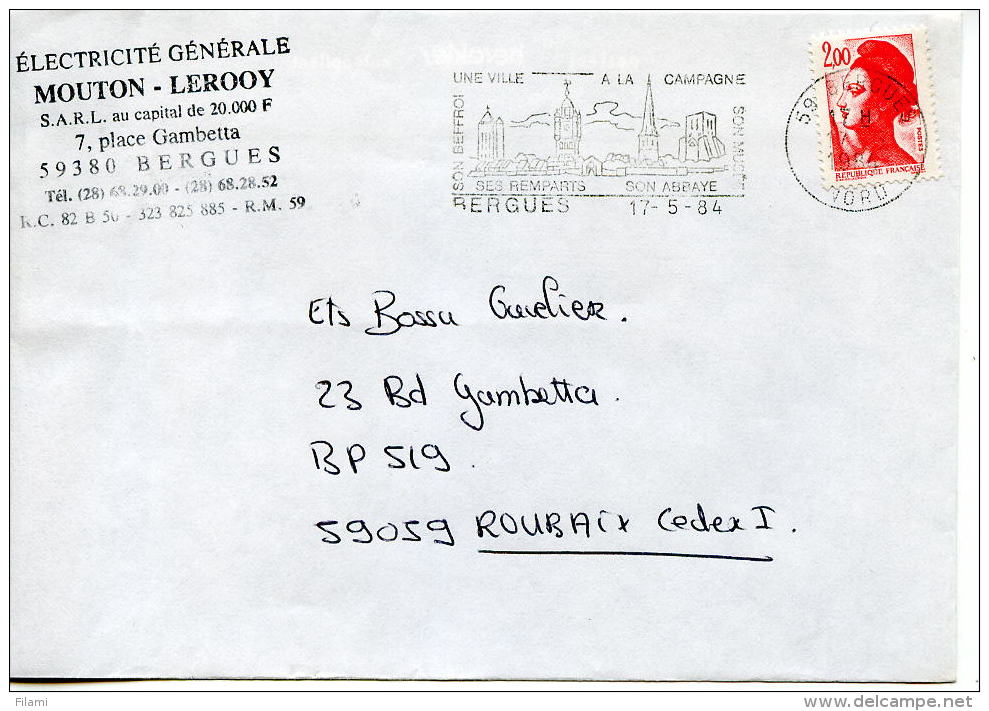 ÉLECTRICITÉ GÉNÉRALE
MOUTON - LEROOY
S.A.R.L. au capital de 20.000 F
7, place Gambetta
59380 BERGUES
Tél. (28) 68.29.00 - (28) 68.28.52
R.C. 82 B 50 - 323 825 885 - R.M. 59
UNE VILLE A LA CAMPAGNE
SON BEFFROI
SON MUSÉE
SES REMPARTS SON ABBAYE
BERGUES 17-5-84
2,00
POSTES
RÉPUBLIQUE FRANÇAISE
59 BERGUES
NORD
Ets Bossu Cuvelier.
23 Bd Gambetta.
BP 519.
59059 ROUBAIX Cedex I.
Filami
www.delcampe.net